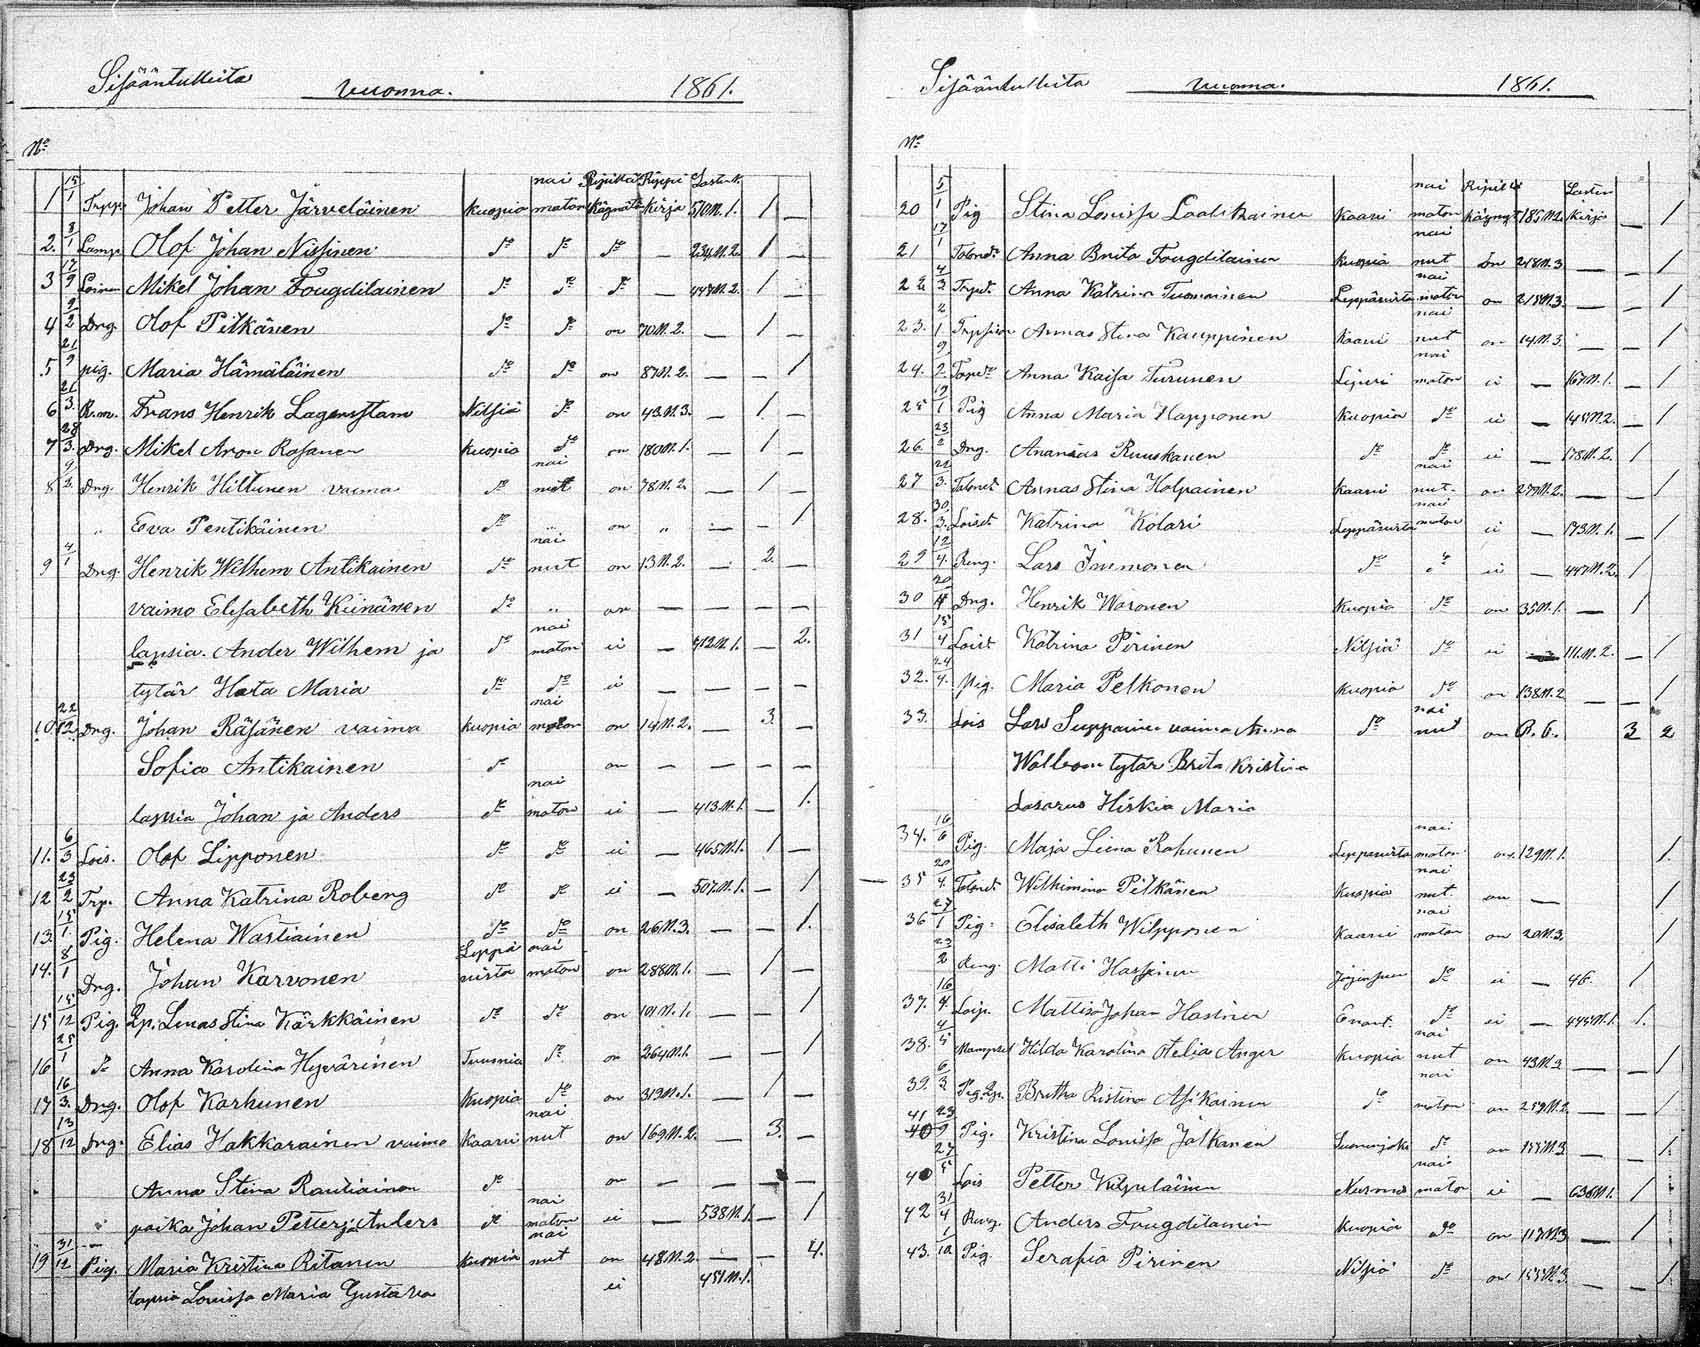 Sisääntulleita vuonna. 1861.
No
nai Ripillä Rippi Lasten K.
1 15/1 Trpp. Johan Petter Järveläinen Kuopio maton käynyt kirja 510 N.1. 1 —
2. 8/1 Lamp. Olof Johan Nissinen do do do — 234 N.2. 1 —
3 17/9 Loinen Mikel Johan Fougdilainen do do do — 448 N.2. 1
4 9/2 Dng. Olof Pitkänen do do on 70 N.2. — 1 —
5 21/9 pig. Maria Hämäläinen do do on 87 N.2. — — 1
6 21/3. R.m. Frans Henrik Lagerstam Nilsiä do on 43 N.3. — 1. —
7 28/3. Dng. Mikel Aron Rasanen Kuopio do on 180 N.1. — 1 —
nai
8 Dng. Henrik Hiltunen vaimo do nut on 78 N.2. — 1 —
„ Eva Pentikäinen do „ on „ — — 1
nai
9 4/1 Dng. Henrik Wilhem Antikainen do nut on 13 N.2. — 2. —
vaimo Elisabeth Kiinänen do „ on — — — —
nai
lapsia. Ander Wilhem ja do maton ei — 412 N.1. — 2.
tytär Hata Maria do do ei — — — —
nai
10. 22/12 Dng. Johan Räsänen vaimo Kuopio maton on 14 N.2. — 3. —
Sofia Antikainen do on — — — —
nai
lapsia Johan ja Anders do maton ei — 413 N.1. — 1.
11. 6/3 Lois. Olof Lipponen do do ei — 465 N.1. 1 —
12 23/2 Trp. Anna Katrina Roberg do do ei — 507 N.1. — 1
13. 15/1. Pig. Helena Wastiainen do do on 26 N.3. — — 1.
Leppä nai
14. 8/1 Dng. Johan Karvonen virta maton on 288 N.1. — 1 —
15 15/12 Pig. Lp. Lenas Stina Kärkkäinen do do on 101 N.1. — — 1
16 25/1 do Anna Karolina Hyvärinen Tuusnia do on 264 N.1. — — 1
17 16/3. Dng. Olof Karhunen Kuopio do on 319 N.1. — 1 —
nai
18 13/12 Dng. Elias Hakkarainen vaimo Kaavi nut on 169 N.2. — 3. —
Anna Stina Rautiainen do on — — — —
nai
poika Johan Petter ja Anders do maton ei — 538 N.1. — 1
nai
19 31/12 Pig. Maria Kristina Ritanen Kuopio nut on 48 N.2. — — 4.
lapsia Lovisa Maria Gustava ei 451 N.1.
Sisääntulleita vuonna. 1861.
No
nai Ripille Lasten
20 5/1 Pig Stina Lovissa Laatikainen Kaavi maton käynyt 185 N.2. kirja — 1
nai
21 17/1 Anna Brita Fougdilainen Kuopio nut on 218 N.3 — — 1
nai
22 4/3 Anna Katrina Tuomainen Leppävirta maton on 215 N.3. — — 1
nai
23. Annas Stina Kauppinen Kaavi nut on 14 N.3. — — 1
nai
24. Anna Kaisa Turunen Liperi maton ei — 167 N.1. — 1
25 Pig Anna Maria Happonen Kuopio do ei — 145 N.2. — 1
26. Dng. Ananias Ruuskanen do do ei — 178 N.2. 1
nai
27 Annas Stina Holpainen Kaavi nut. on 279 N.2. — — 1
nai
28. 30/3. Loiset Katrina Kolari Leppävirta maton ei — 173 N.1. — 1
29 12/4. Reng. Lars Immonen do do ei — 447 N.2. 1
30 Dng. Henrik Woronen Kuopio do on 35 N.1. — 1
31 15/4 Loist Katrina Pirinen Nilsiä do ei — 111. N.2. — 1
32. 24/4. Pig. Maria Pelkonen Kuopio do on 138 N.2 — — 1
nai
33. Lois Lars Suppainen vaimo Anna do nut on P. 6. 3 2
tytär Brita Kristina
Lasarus Hiskia Maria
nai
34. 16/6 Pig. Maja Liena Rahunen Leppävirta maton on 129 N.1. 1.
nai
35 20/4. Wilhimina Pitkänen Kuopio nut on — 1
nai
36 27/1 Pig: Elisabeth Wilpponen Kaavi maton on 20 N.3. 1
23/2 Reng. Matti do ei — 46. 1
37. 16/4. Mattis Johan do ei — 445 N.1. 1.
nai
38. 4/5 Mampsel Hilda Karolina Otelia Anger Kuopio nut on 43 N.3 — — 1
nai
39. 6/3 Pig. Lp. Britha Ristina Asikainen do maton on 259 N.2. — — 1
41 23/9 Pig. Kristina Lovissa Jalkanen Suonenjoki do on 155 N.3 — — 1.
nai
40 27/5 Lois Petter Nurmes maton ei — 636 N.1. 1
42 31/4 Reng. Anders Fougdilainen Kuopio do on 117 N.3 — 1
43. 1/10 Pig. Serafia Pirinen Nilsiä do on 155 N.3. — — 1